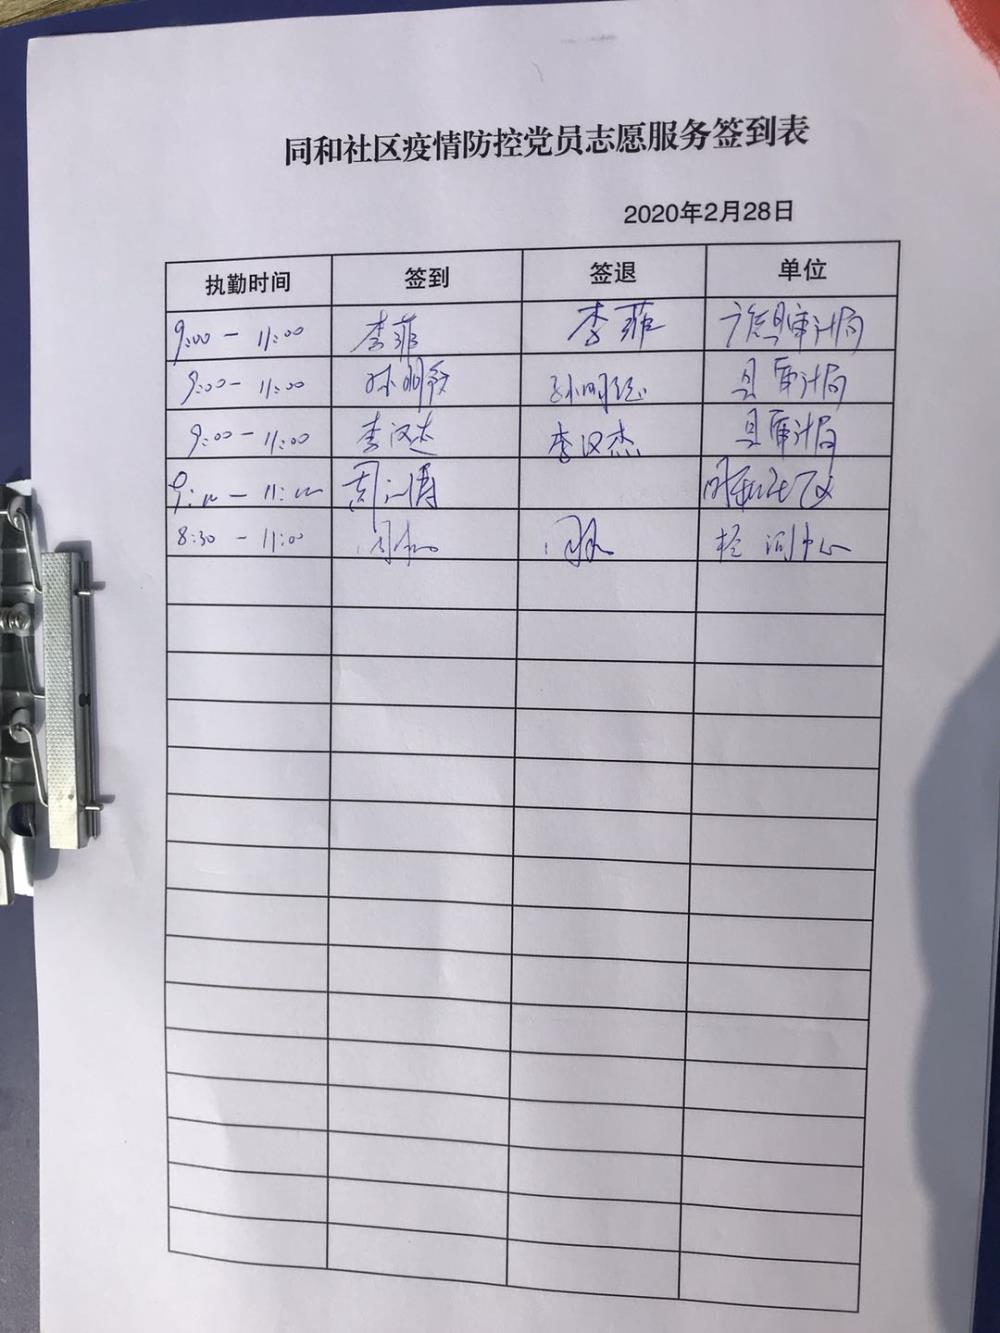 同和社区疫情防控党员志愿服务签到表
2020年2月28日
执勤时间 签到 签退 单位
9:00 — 11:00 李菲 李菲 广德县审计局
9:00 — 11:00 孙明 孙明 县审计局
9:00 — 11:00 李汉杰 李汉杰 县审计局
9:00 — 11:00 周 同和社区
8:30 — 11:00 检测中心